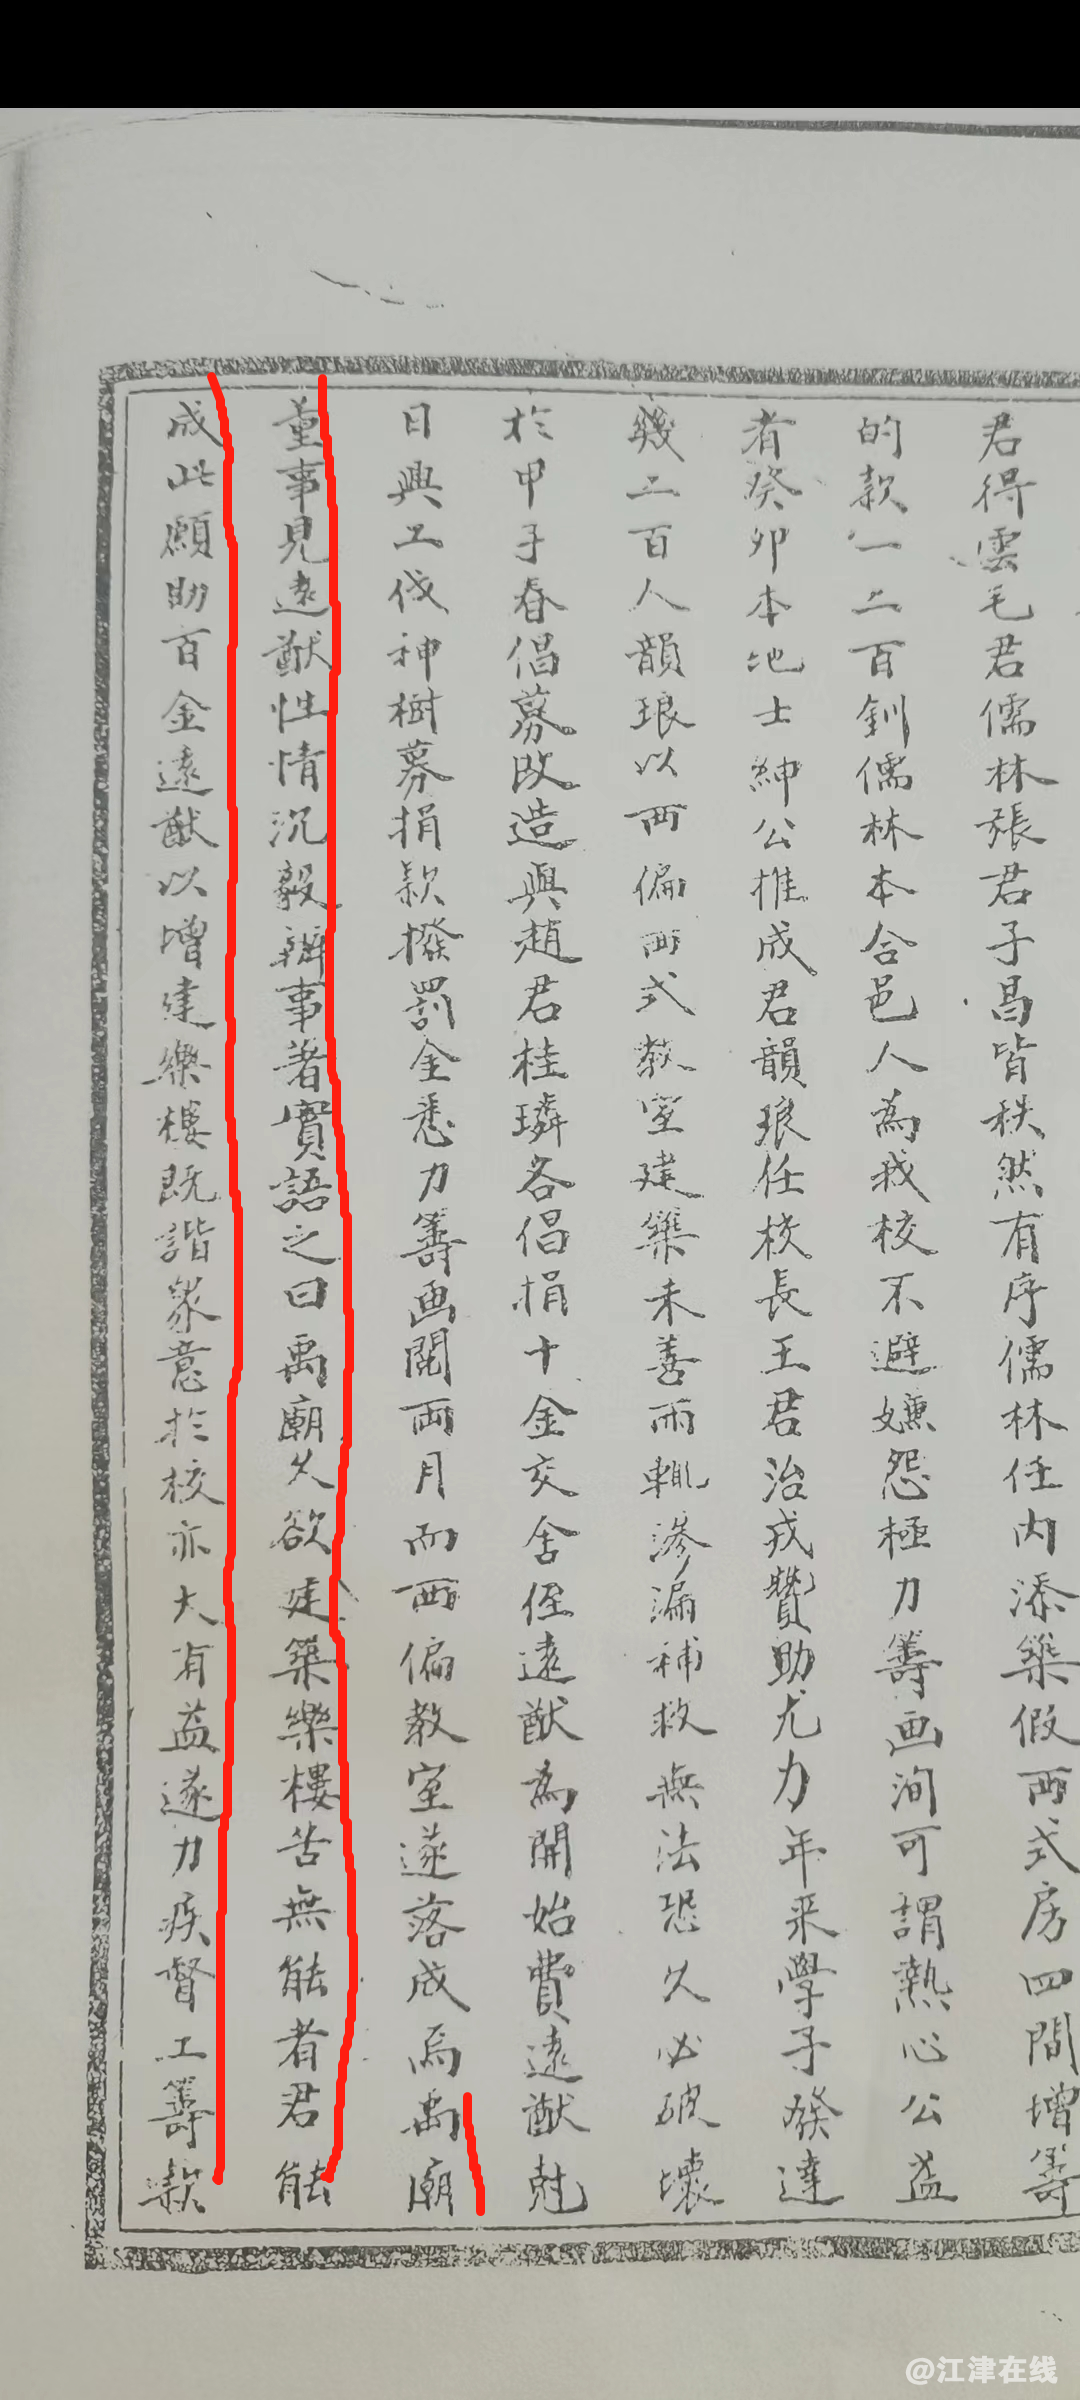 君得雲毛君儒林張君子昌皆秩然有序儒林任內添築假西式房四間增籌
的款一二百釧儒林本合邑人為我校不避嫌怨極力籌画洵可謂熱心公益
者癸卯本地士紳公推成君韻琅任校長王君治戎贊助尤力年来學子發達
幾二百人韻琅以西偏西式教室建築未善雨輒滲漏補救無法恐久必破壞
於甲子春倡募改造與趙君桂璘各倡捐十金交舍侄遠猷為開始費遠猷尅
日興工伐神樹募捐款撥罰金悉力籌画閱両月而西偏教室遂落成焉禹廟
董事見遠猷性情沉毅辦事著實語之曰禹廟久欲建築樂樓苦無能者君能
成此願助百金遠猷以增建樂樓既諧衆意於校亦大有益遂力疾督工籌款
@江津在线